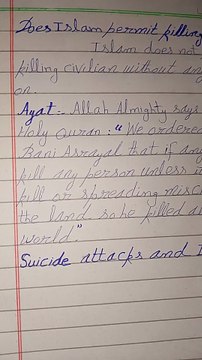 Does Islam permit killing
Islam does not
killing civilian without any
on.
Ayat:- Allah Almighty says
Holy Quran: "We ordered
Bani Asrayal that if any
kill any person unless
kill or spreading misc
the land so he killed a
world."
Suicide attacks and I